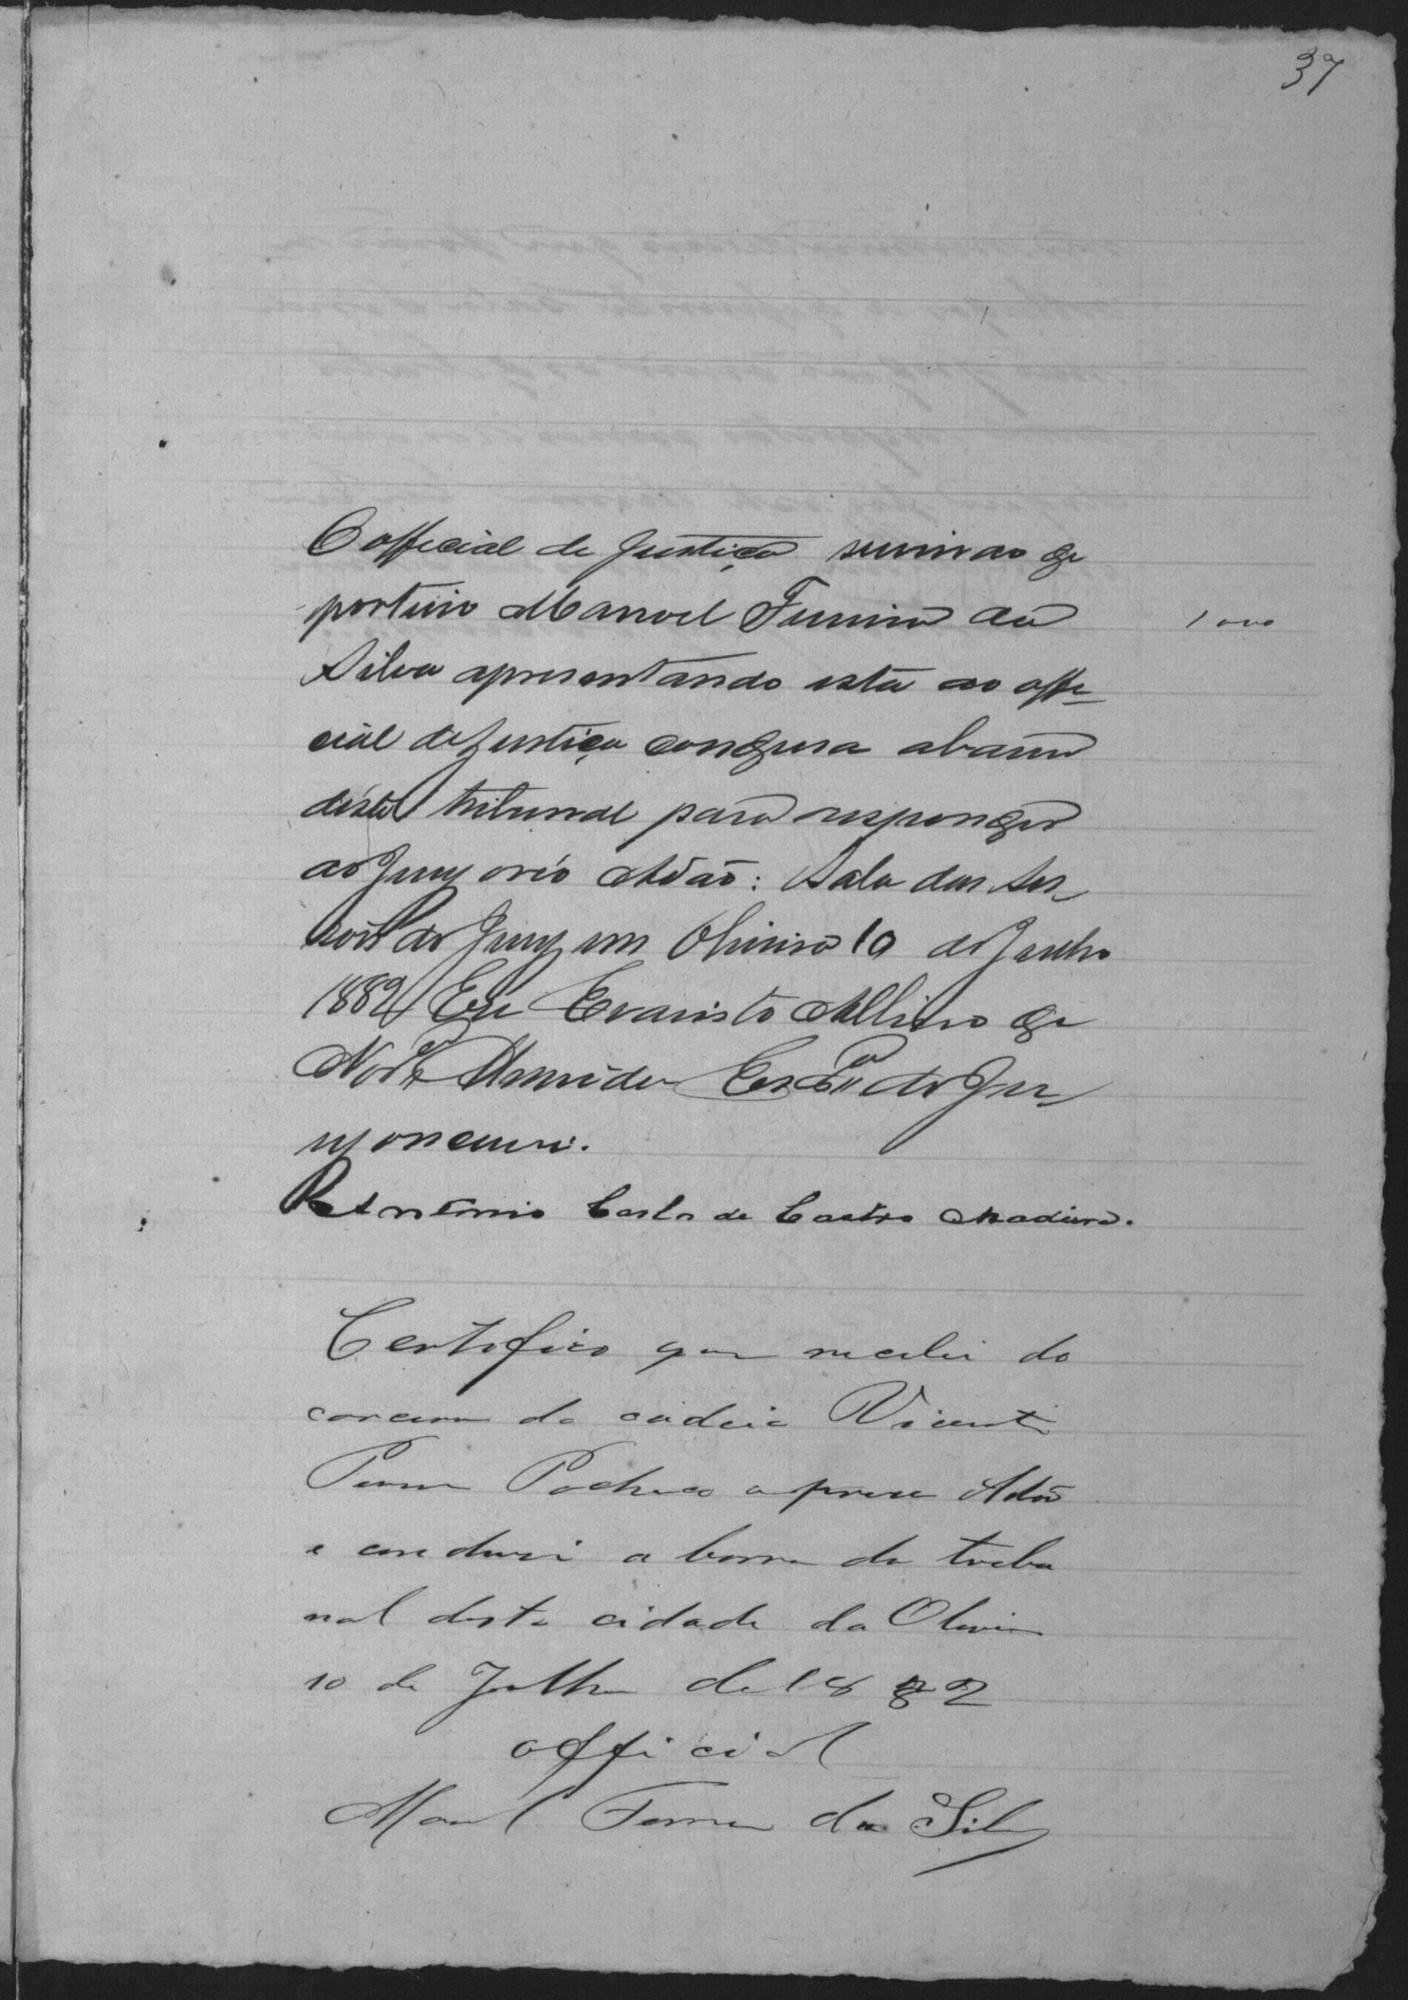 37
O official de Justiça servindo de
porteiro Manoel Ferreira da
1000
Silva apresentando esta ao offi-
cial de Justiça condusa a barra
deste tribunal para responder
ao Jury o réo Adão: Sala das Ses-
sões do Jury em Oliveira 10 de Julho
1882 Eu Evaristo de
Almeida Escrivão do Ju-
ry o escrevi.
Antonio Carlos de Castro Madeira.
Certifico que recebi do
carcereiro da cadeia Vicente
Pacheco o preso Adão
e conduzi a barra do tribu
nal desta cidade da Oliveira
10 de Julho de 1882
official
Manoel Ferreira da Silva